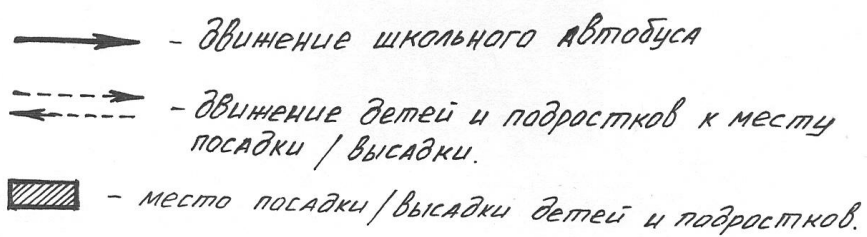 - движение школьного автобуса
- движение детей и подростков к месту
посадки / высадки.
- место посадки/высадки детей и подростков.